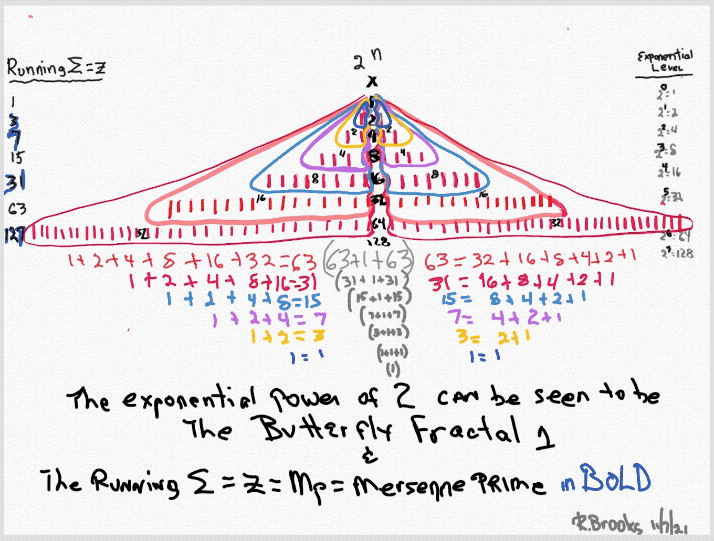 2ⁿ
x
Running Σ=z
1
3
7
15
31
63
127
Exponential
Level
2⁰=1
2¹=2
2²=4
2³=8
2⁴=16
2⁵=32
2⁶=64
2⁷=128
1
2
2 4 2
4 8 4
8 16 8
16 32 16
32 64 32
128
1+2+4+8+16+32=63 (63+1+63) 63=32+16+8+4+2+1
1+2+4+8+16=31 (31+1+31) 31=16+8+4+2+1
1+2+4+8=15 (15+1+15) 15=8+4+2+1
1+2+4=7 (7+1+7) 7=4+2+1
1+2=3 (3+1+3) 3=2+1
1=1 (1+1+1) 1=1
(1)
The exponential power of 2 can be seen to be
The Butterfly Fractal 1
&
The Running Σ=z=Mp=Mersenne PRIME in BOLD
R.Brooks